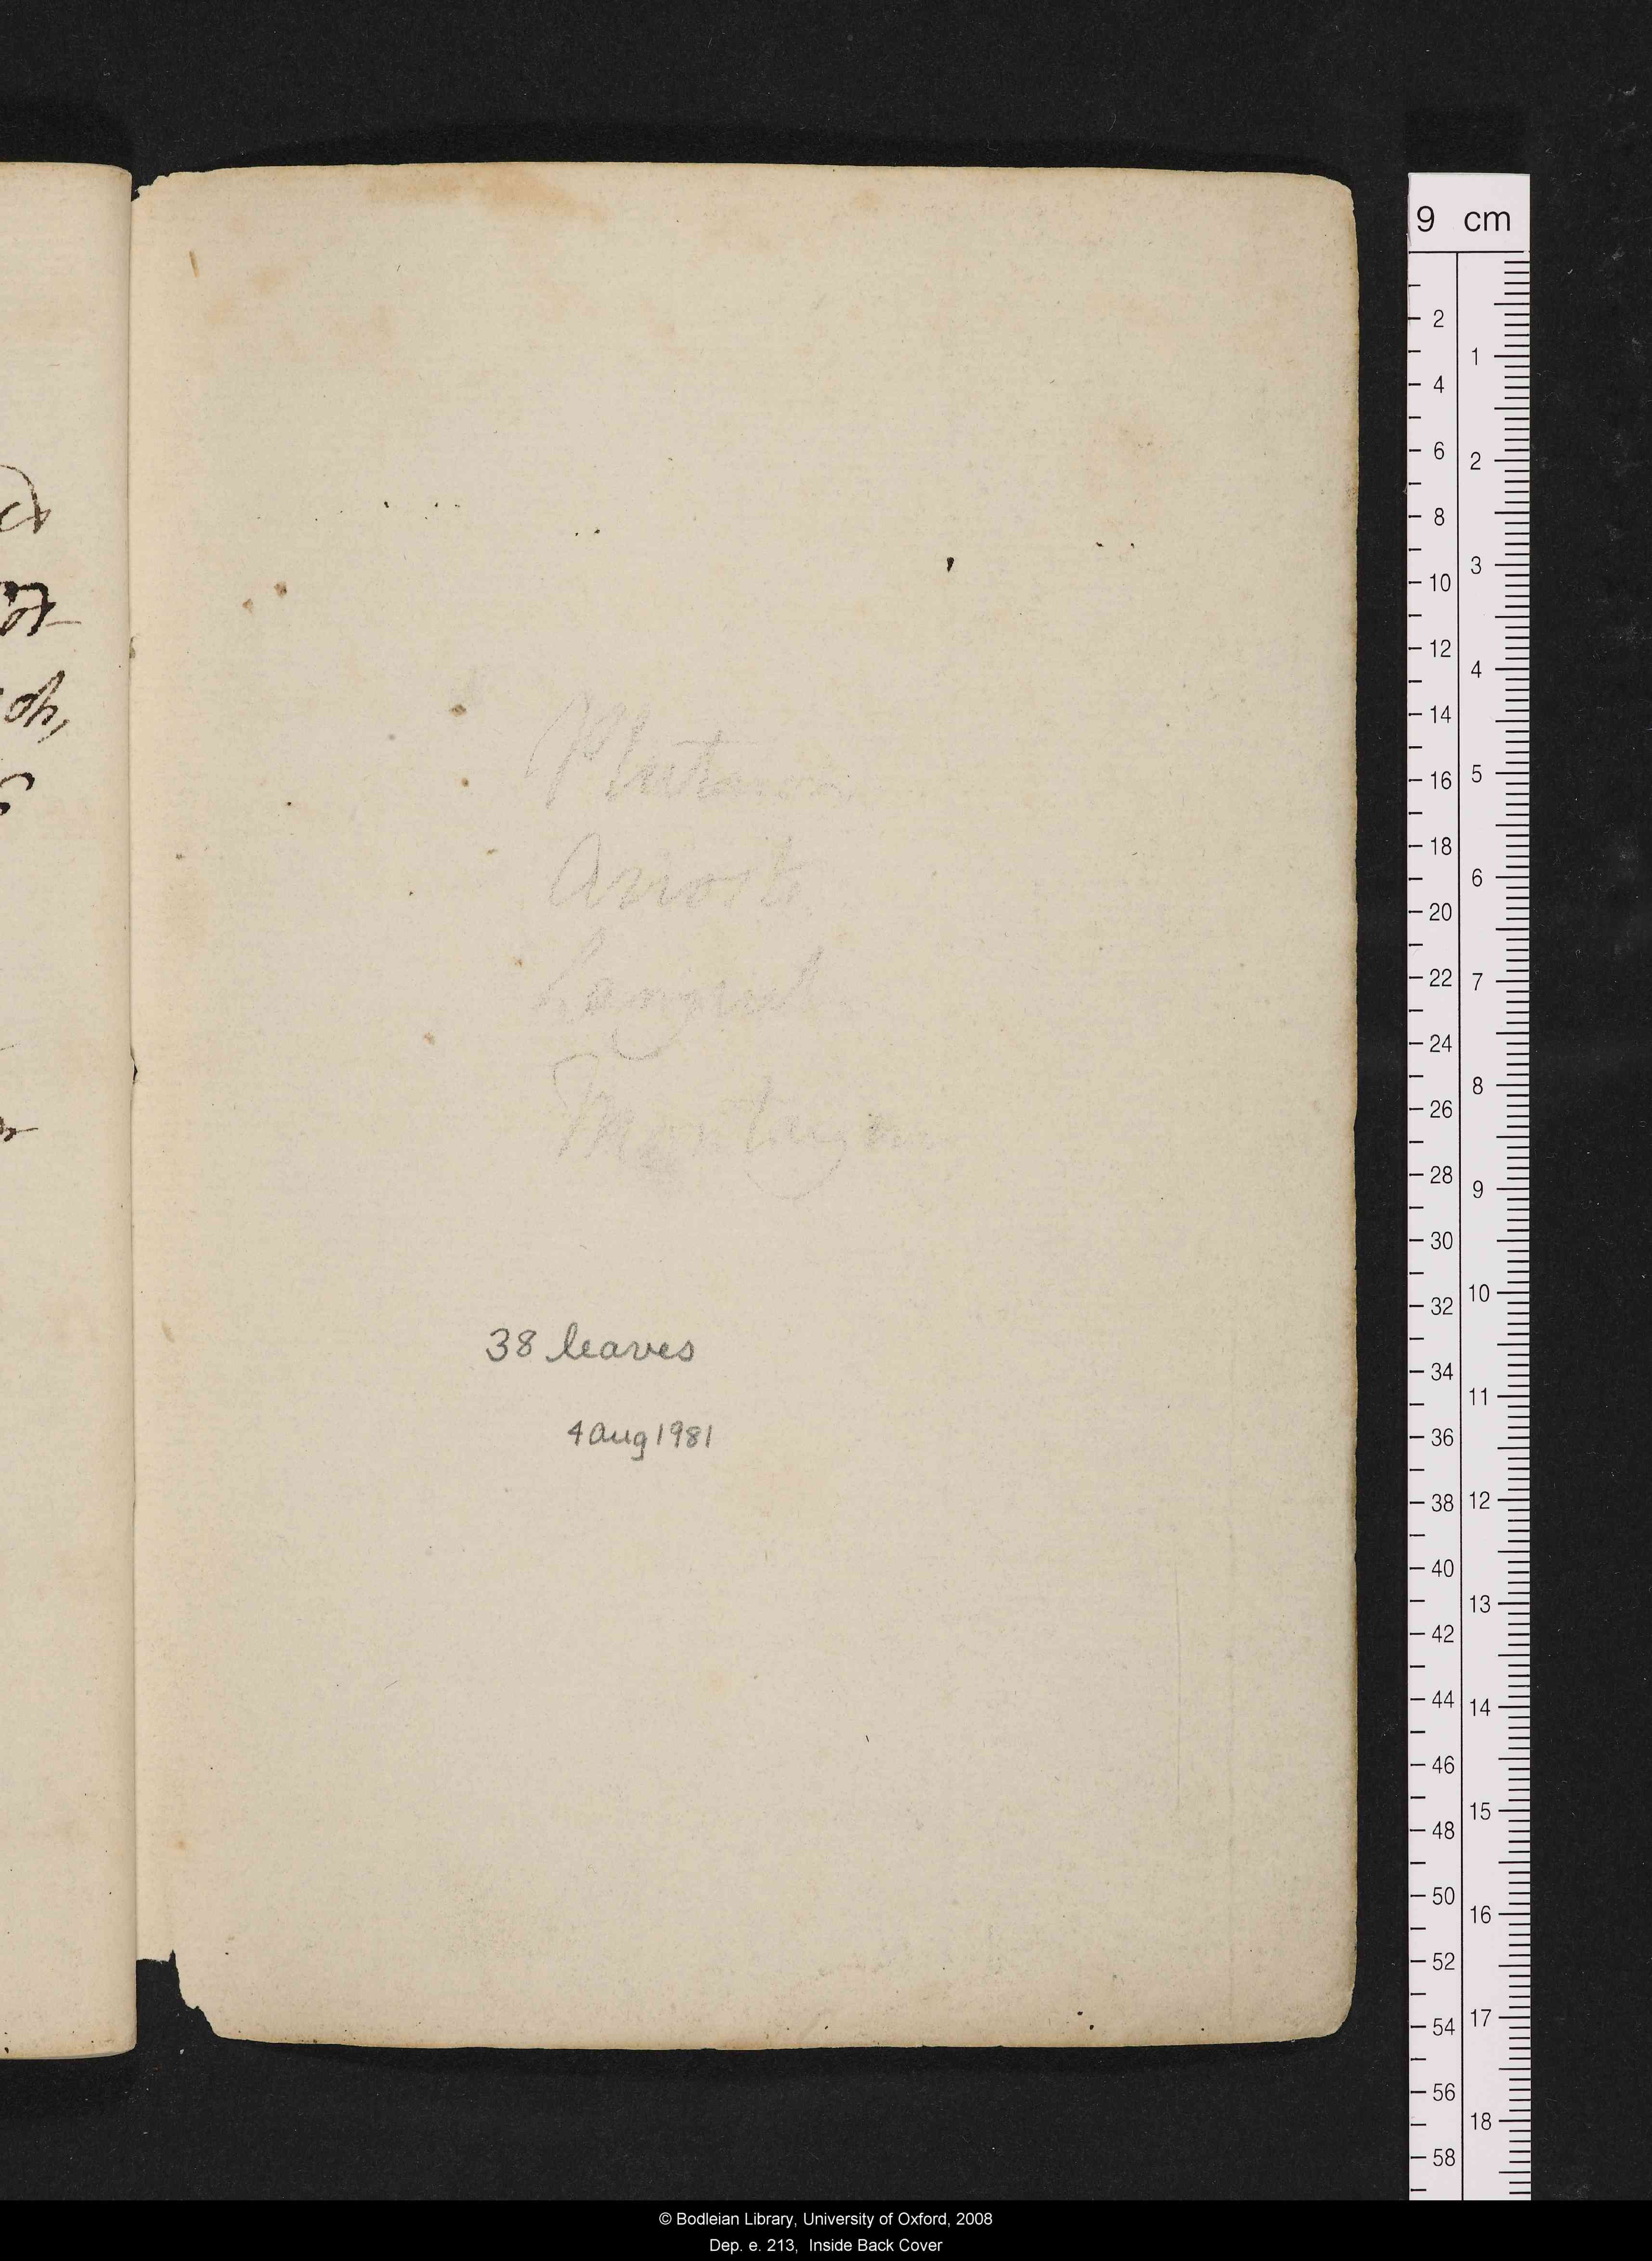 Ariosto
Montaigne
38 leaves
4 Aug 1981
9 cm
2
4
6
8
10
12
14
16
18
20
22
24
26
28
30
32
34
36
38
40
42
44
46
48
50
52
54
56
58
1
2
3
4
5
6
7
8
9
10
11
12
13
14
15
16
17
18
© Bodleian Library, University of Oxford, 2008
Dep. e. 213, Inside Back Cover